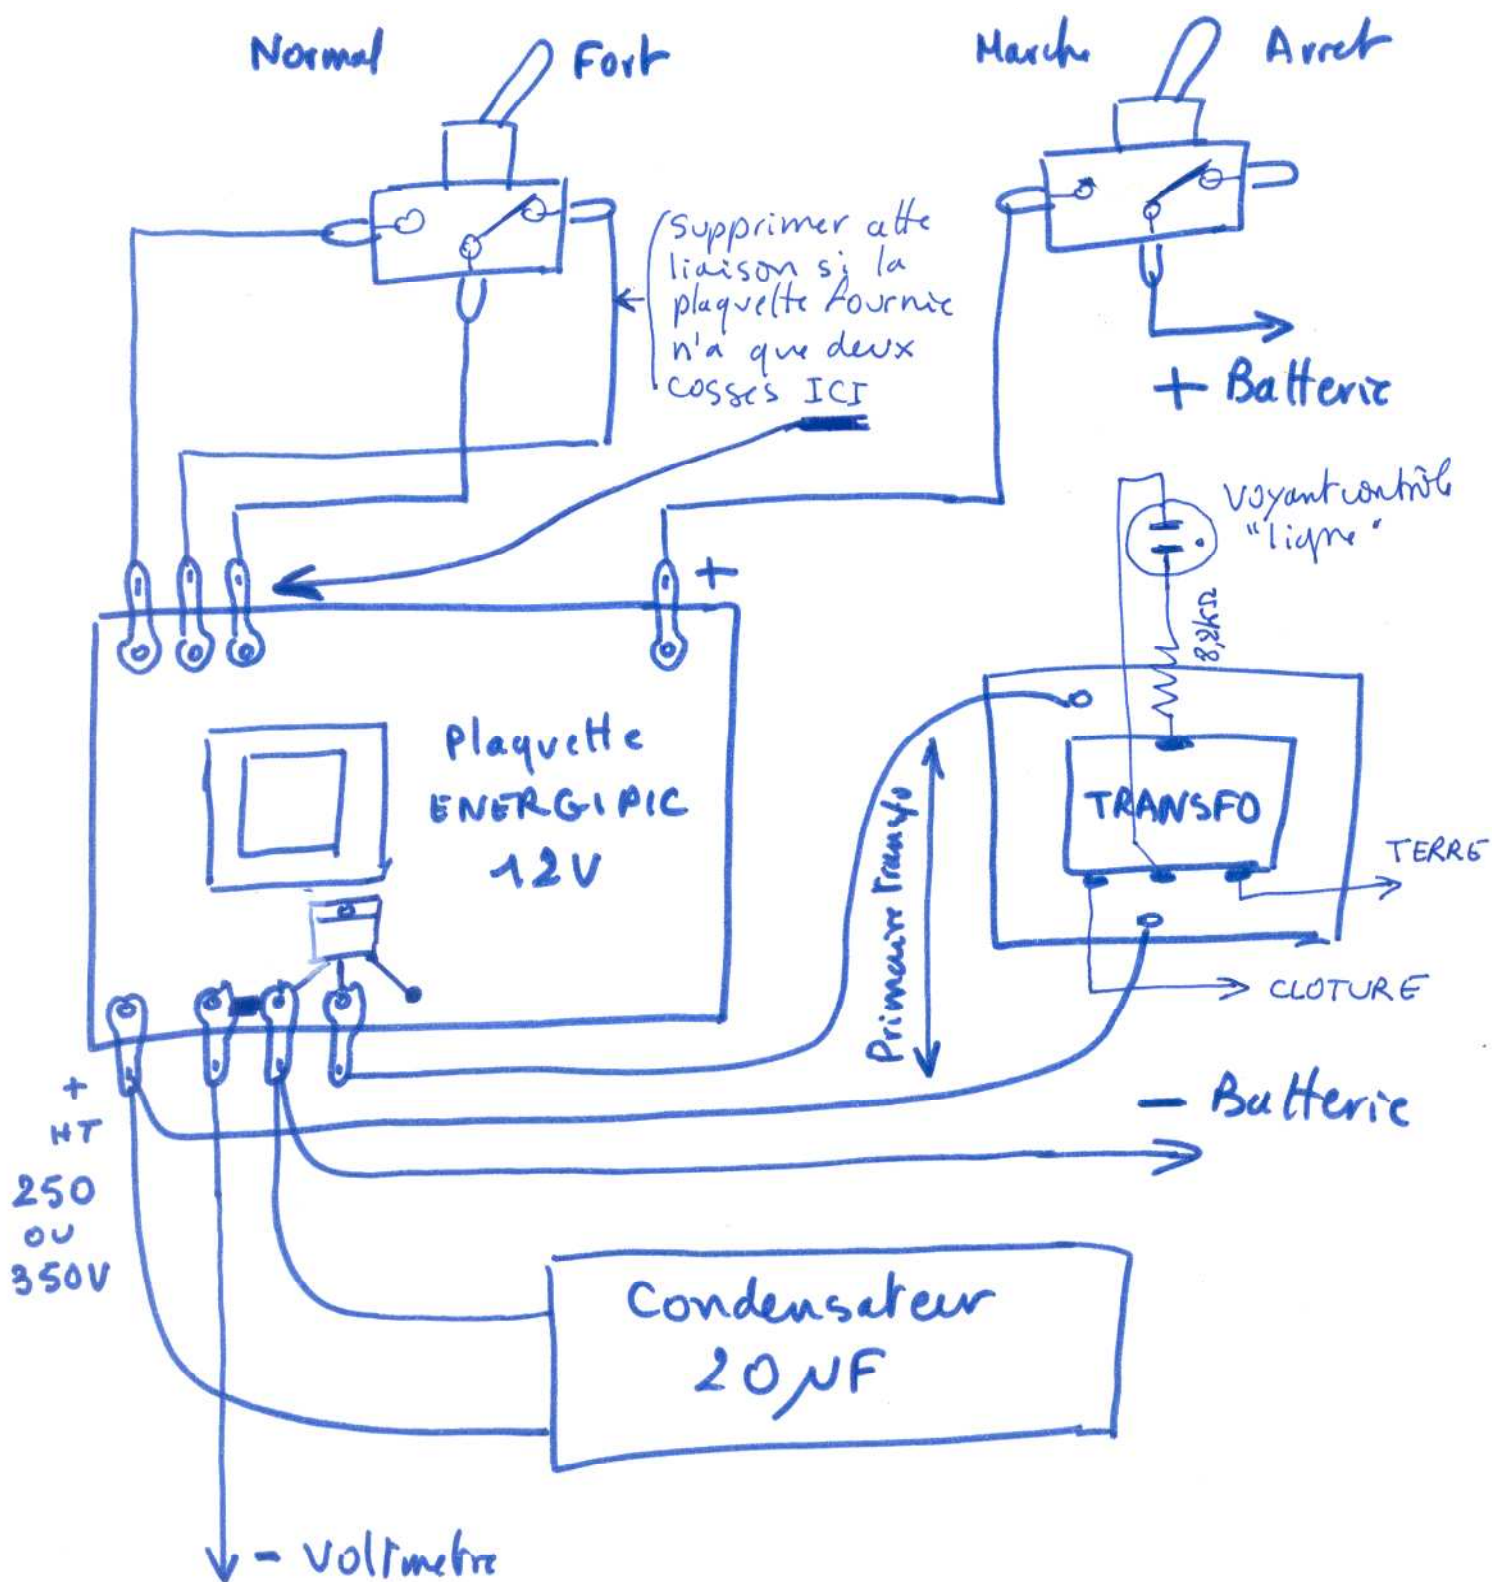 Normal
Fort
Marche
Arret
Supprimer cette
liaison si la
plaquette fournie
n'a que deux
cosses ICI
+ Batterie
Voyant contrôle
"ligne"
8,2kΩ
+
Plaquette
ENERGIPIC
12V
Primaire Transfo
TRANSFO
TERRE
CLOTURE
+
HT
250
OU
350V
- Batterie
Condensateur
20µF
- Voltmetre